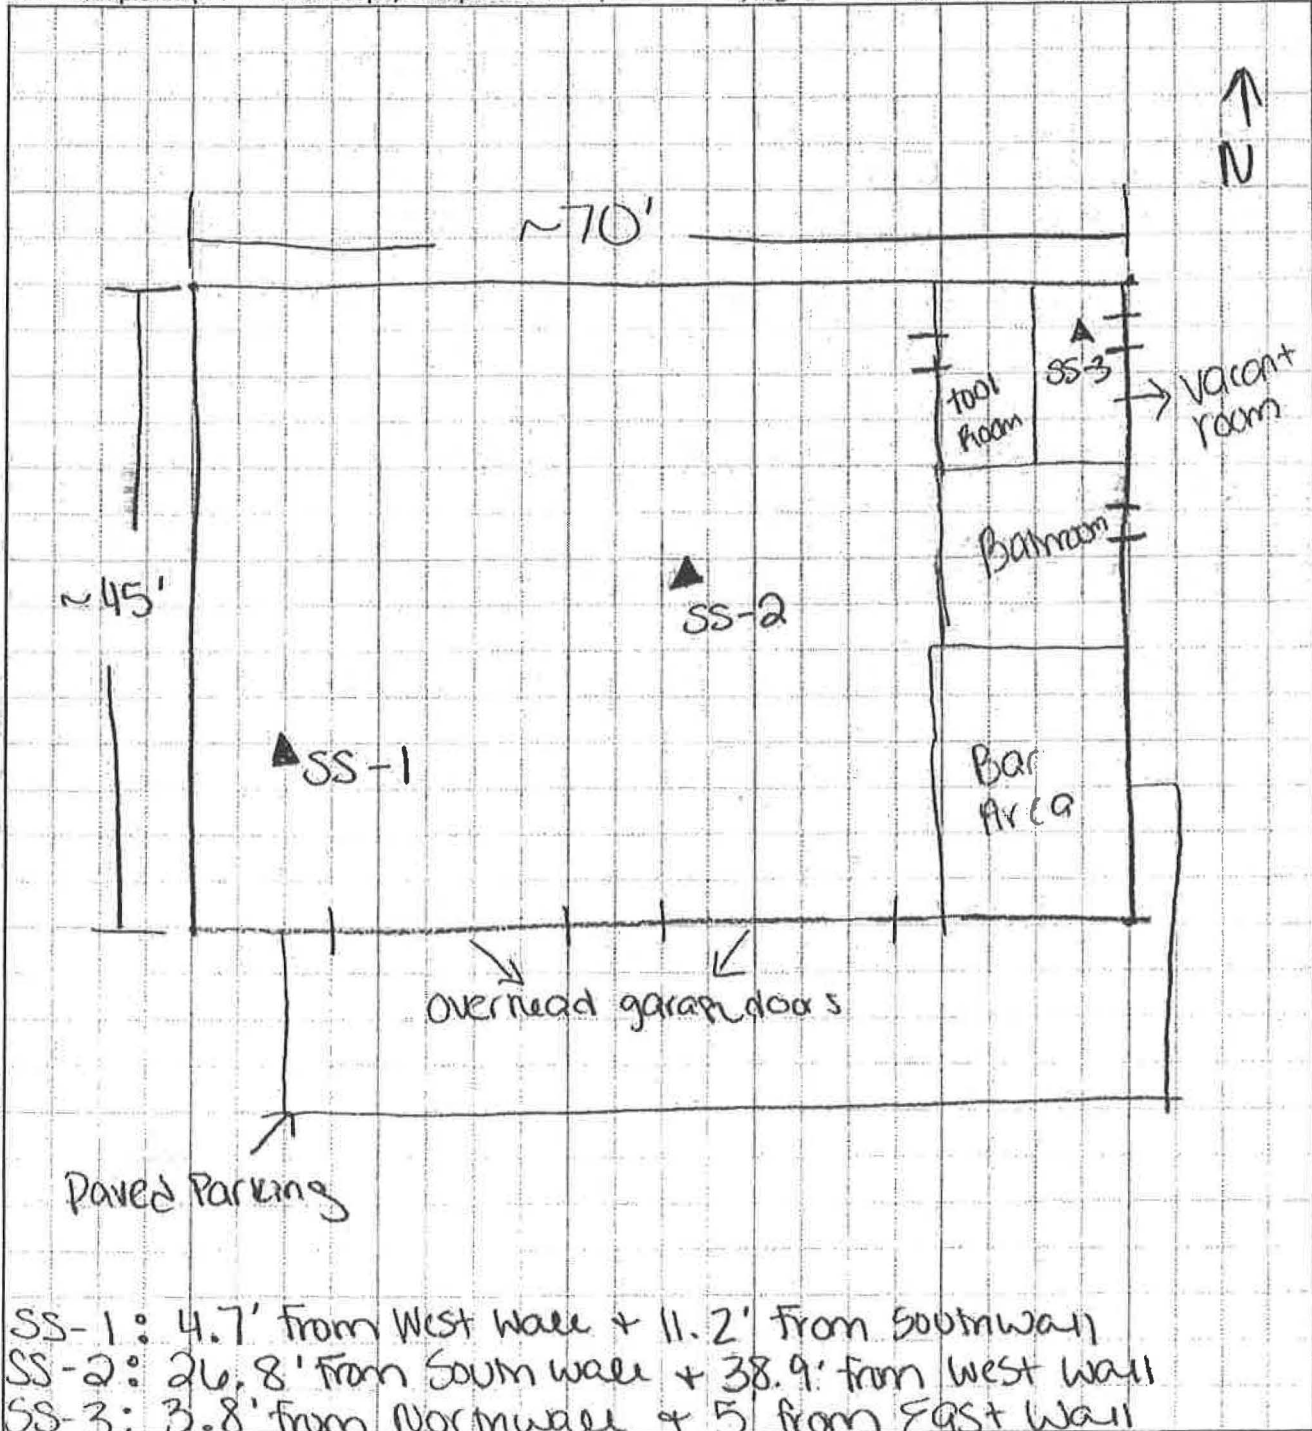 N
~70'
SS-3
tool
Room
vacant
room
Bathroom
~45'
SS-2
SS-1
Bar
Area
overhead garage doors
Paved Parking
SS-1: 4.7' from West Wall + 11.2' from Southwall
SS-2: 26.8' from South wall + 38.9' from West Wall
SS-3: 3.8' from Northwall + 5' from East Wall